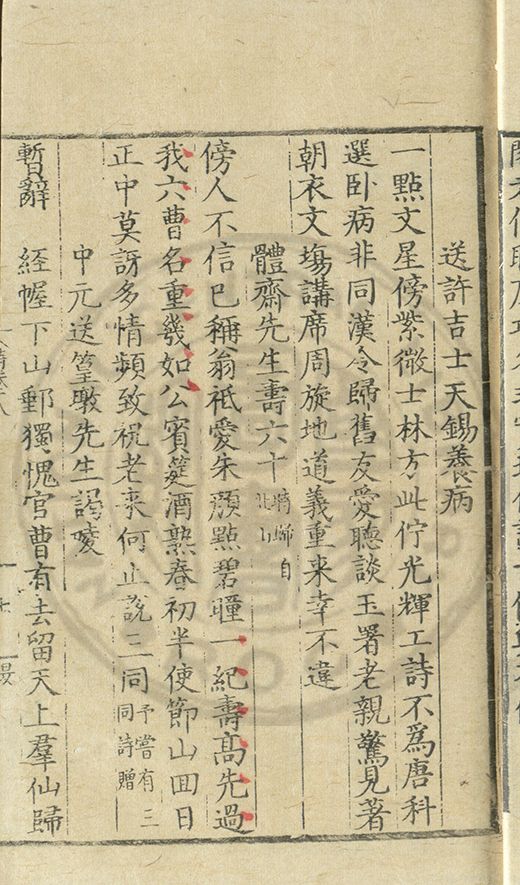 送許吉士天錫養病
一點文星傍紫微士林方此佇光輝工詩不為唐科
選卧病非同漢令歸舊友愛聽談玉署老親驚見著
朝衣文塲講席周旋地道義重来幸不違
體齋先生壽六十時歸自北山
傍人不信已稱翁祗愛朱顔點碧瞳一紀壽髙先過
我六曹名重幾如公賓筵酒熟春初半使節山囬日
正中莫訝多情頻致祝老来何止說三同予嘗有三同詩贈
中元送篁墩先生謁陵
暫辭 経幄下山郵獨愧官曹有去留天上羣仙歸